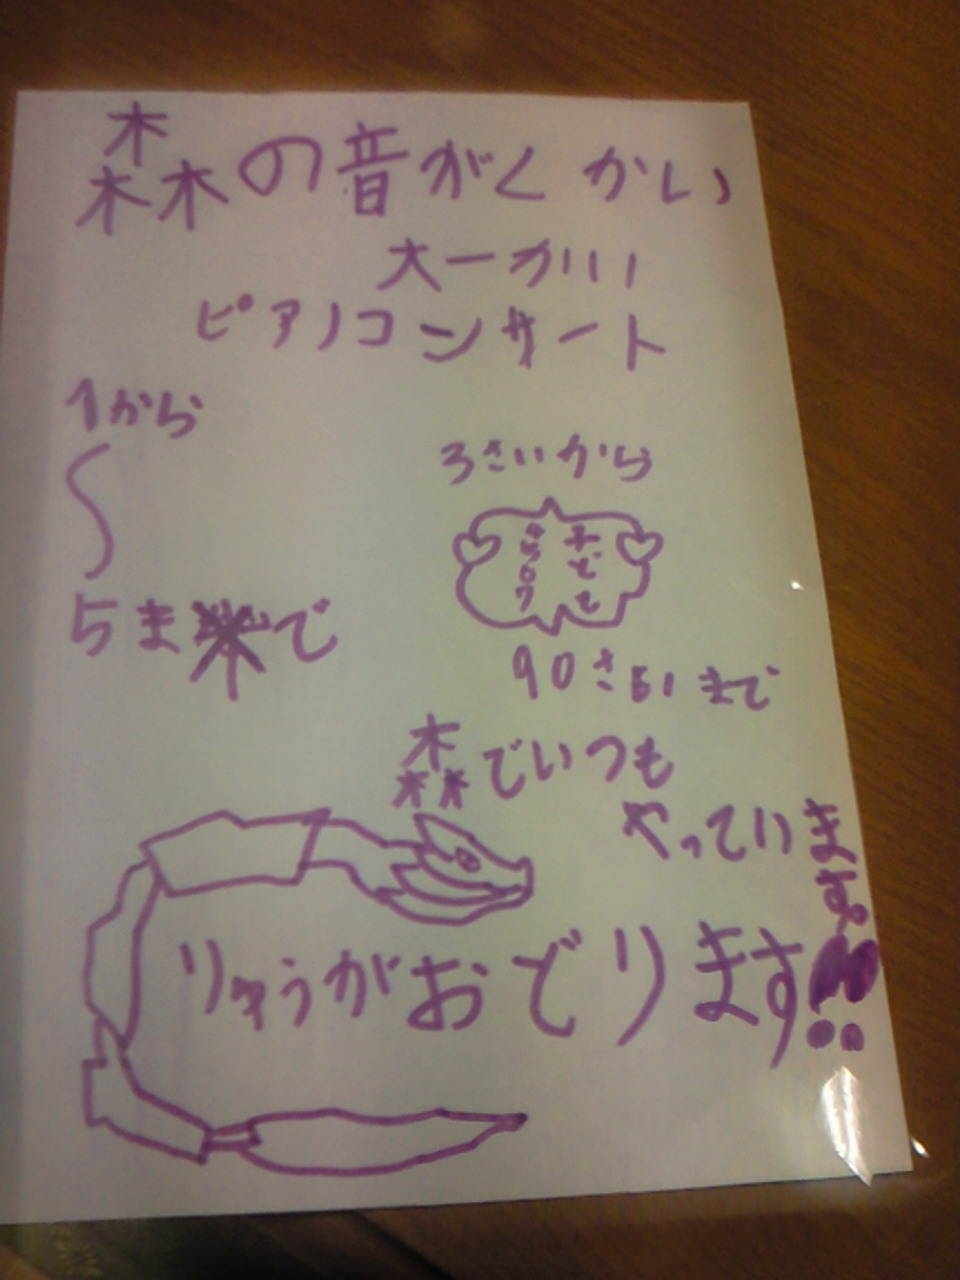 森の音がくかい
大一かい
ピアノコンサート
1から
〜
5まで
3さいから
90さいまで
森でいつも
やっています。
りゅうがおどります!!